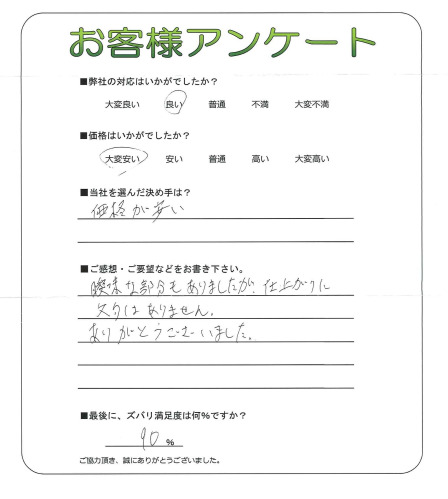 お客様アンケート
■弊社の対応はいかがでしたか？
大変良い 良い 普通 不満 大変不満
■価格はいかがでしたか？
大変安い 安い 普通 高い 大変高い
■当社を選んだ決め手は？
価格が安い
■ご感想・ご要望などをお書き下さい。
曖昧な部分もありましたが、仕上がりに
文句はありません。
ありがとうございました。
■最後に、ズバリ満足度は何％ですか？
90 %
ご協力頂き、誠にありがとうございました。